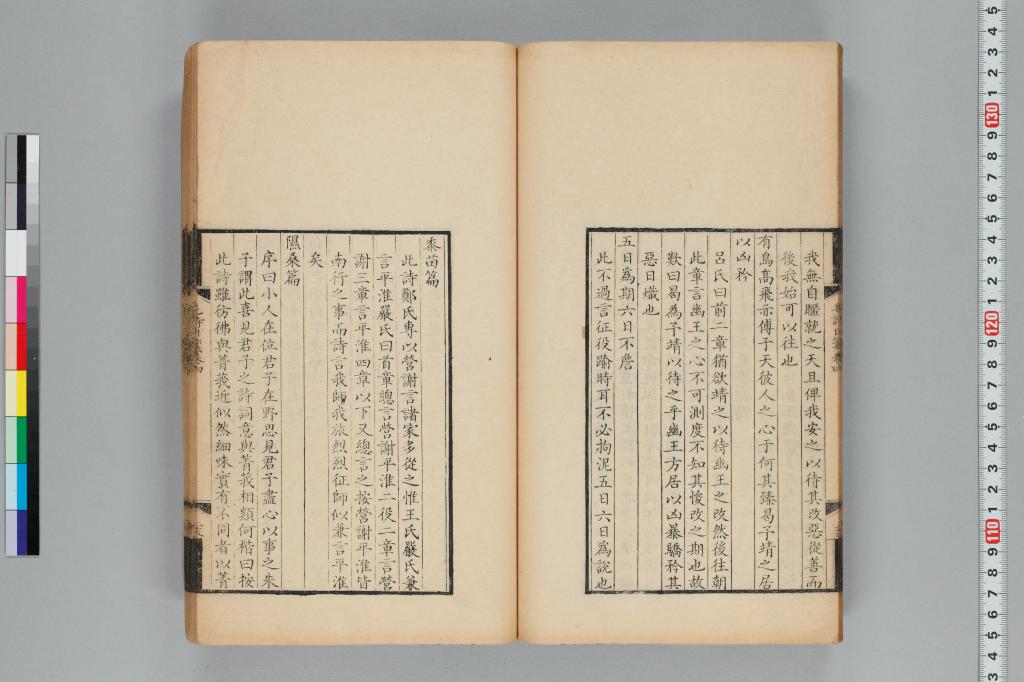 我無自暱就之天且俾我安之以待其改惡從善而
後我始可以往也
有鳥高飛亦傅于天彼人之心于何其臻曷予靖之居
以凶矜
呂氏曰前二章猶欲靖之以待幽王之改然後往朝
此章言幽王之心不可測度不知其悛改之期也故
歎曰曷為予靖以待之乎幽王方居以凶暴驕矜其
惡日熾也
五日為期六日不詹
此不過言征役踰時耳不必拘泥五日六日為說也
黍苗篇
此詩鄭氏專以營謝言諸家多從之惟王氏嚴氏兼
言平淮嚴氏曰首章總言營謝平淮二役二章言營
謝三章言平淮四章以下又總言之按營謝平淮皆
南行之事而詩言我師我旅烈烈征師似兼言平淮
矣
隰桑篇
序曰小人在位君子在野思見君子盡心以事之朱
子謂此喜見君子之詩詞意與菁莪相類何楷曰按
此詩雖彷彿與菁莪近似然細味實有不同者以菁